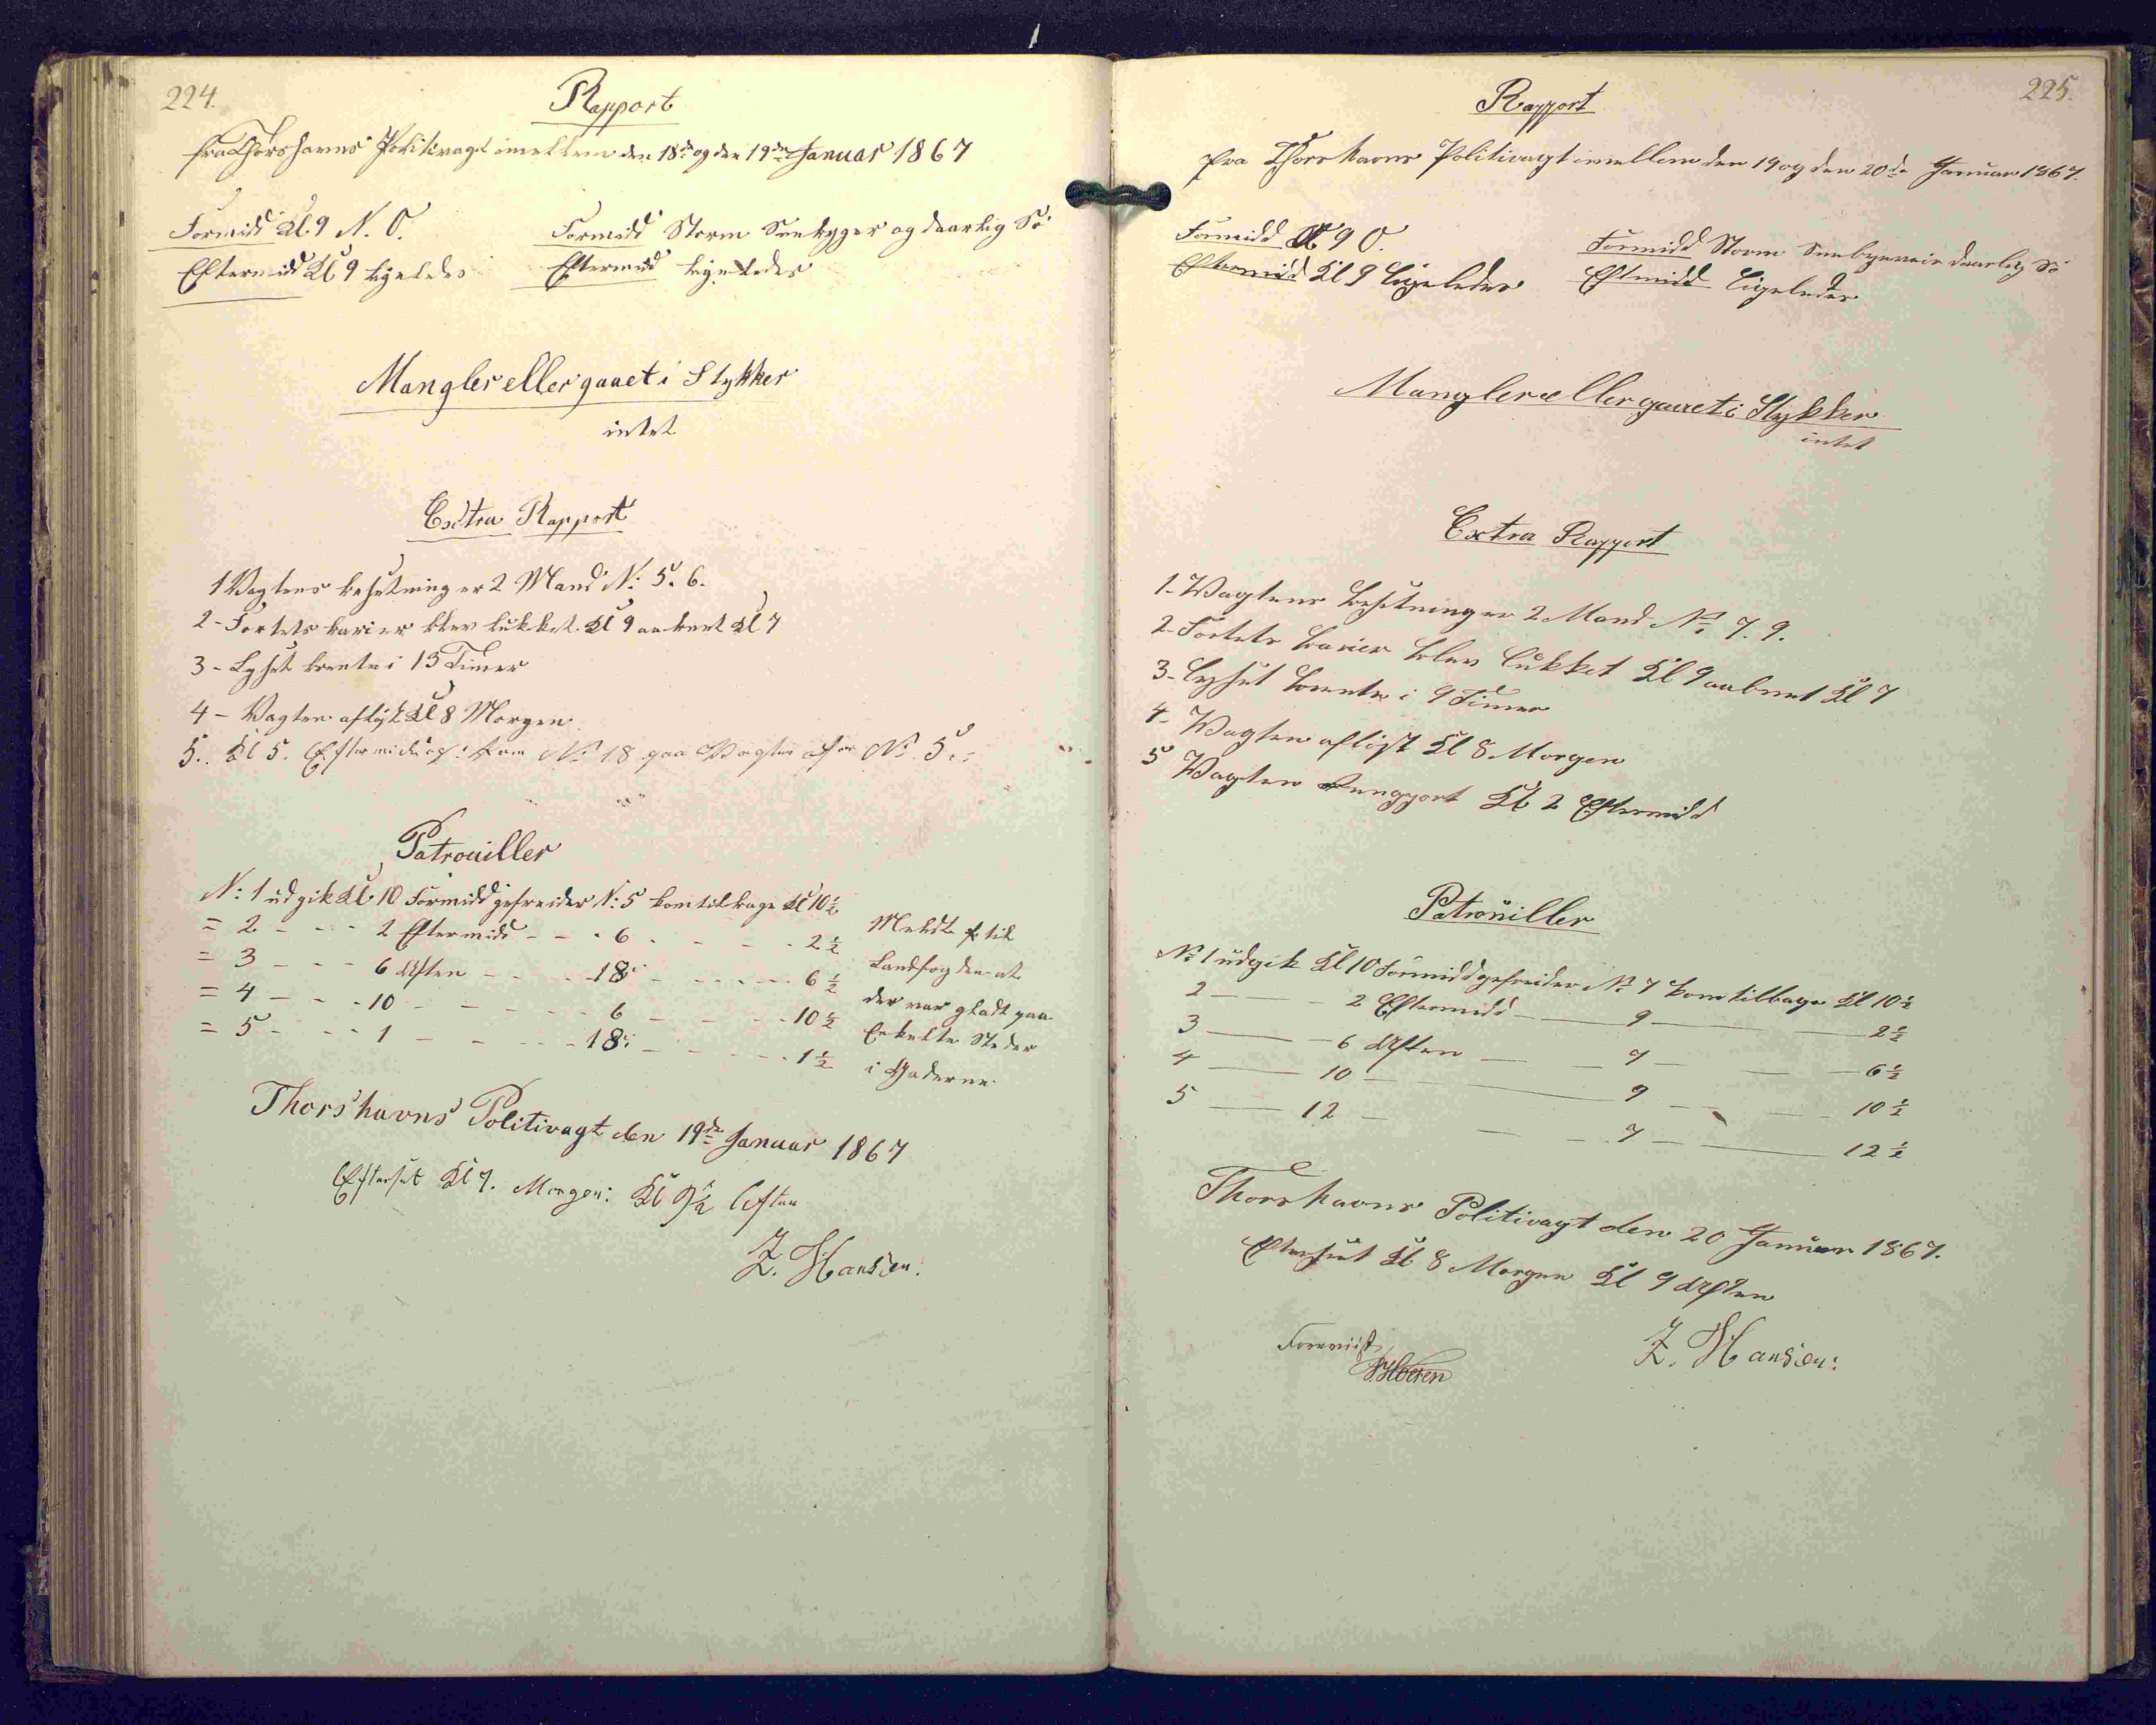 224.
Rapport
fra Thorshavns Politivagt imellem den 18de og den 19de Januar 1867
Formidd Kl. 9 N. O.
Formidd Storm Snebyger og daarlig Sö
Eftermidd Kl 9 ligeledes
Eftermidd ligeledes
Mangler eller gaaet i Stykker
intet
Extra Rapport
1 Vagtens besetning er 2 Mand N: 5. 6.
2 - Fortets barier blev lukket Kl 9 aabent Kl 7
3 - Lyset brente i 13 Timer
4 - Vagten aflöst Kl 8 Morgen
5.. Kl 5. Eftermidag: kom No 18 paa Vagten for No. 5.
Patrouiller
N: 1 udgik Kl. 10 Formidd gefreider N: 5 kom tilbage Kl 10 ½
= 2 - - - 2 Eftermidd - - - 6 - - - - 2 ½
= 3 - - - 6 Aften - - - 18 - - - - 6 ½
= 4 - - - 10 - - - - 6 - - - - 10 ½
= 5 - - - 1 - - - - 18 - - - - 1 ½
Meldt til
Landfogden at
der var gladt paa
Enkelte Steder
i Gaderne
Thorshavns Politivagt den 19de Januar 1867
Efterset Kl 7. Morgen: Kl 9½ Aften
Z. Hansen.
225.
Rapport
fra Thorshavns Politivagt imellem den 19 og den 20de Januar 1867.
Formidd Kl 9 O.
Formidd Storm Snebyeveir daarlig Sö
Eftermid Kl 9 ligeledes
Eftmidd ligeledes
Mangler eller gaaet i Stykker
intet
Extra Rapport
1- Vagtens besetning er 2 Mand No. 7. 9.
2- Fortets barier blev lukket Kl 9 aabent Kl 7
3- Lyset brente i 9 Timer
4- Vagten aflöst Kl 8 Morgen
5 Vagten Rengjort Kl 2 Eftermidd
Patrouiller
No 1 udgik Kl 10 Formidd gefreider No 7 kom tilbage Kl 10 ½
2 — - 2 Eftermidd — 9 — — 2 ½
3 — - 6 Aften — - 7 - — - 6 ½
4 — 10 - — 9 - - — - 10 ½
5 — 12 - — - - 7 - — 12 ½
Thorshavns Politivagt den 20 Januar 1867.
Efterseet Kl 8 Morgen Kl 9 Aften
Foreviist
Z. Hansen: